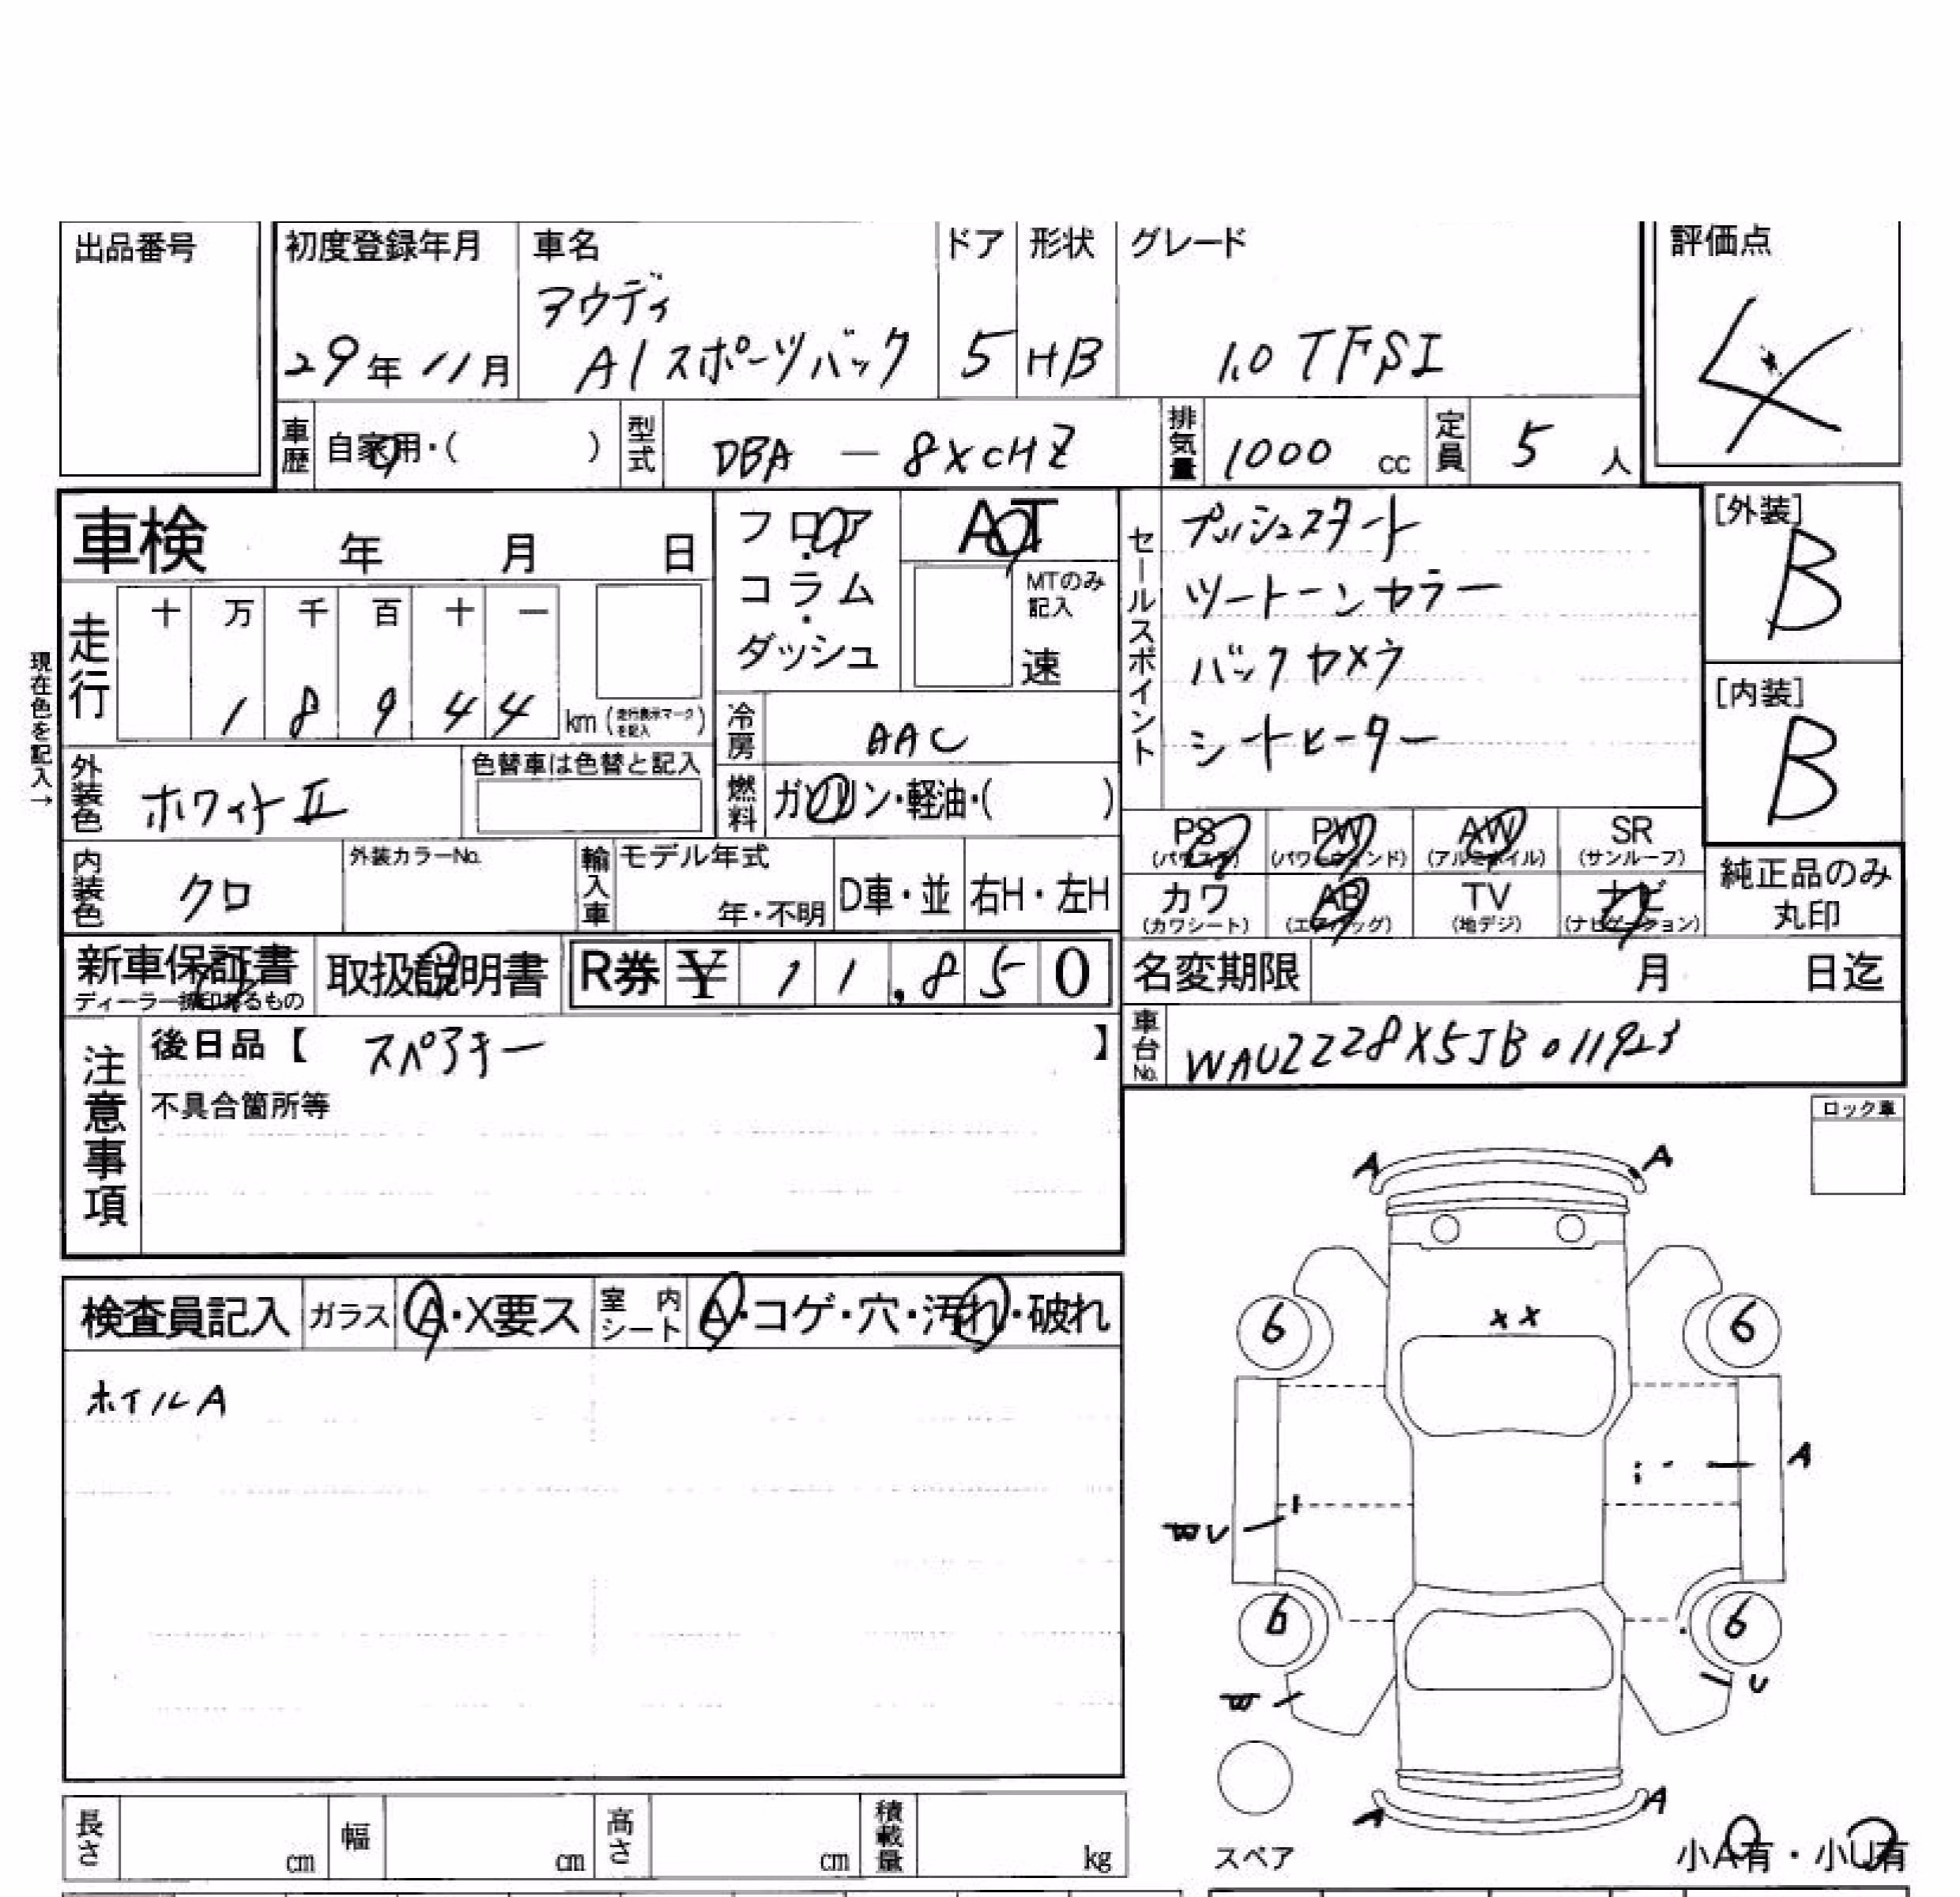 出品番号
初度登録年月
29年11月
車名
アウディ
A1スポーツバック
ドア
5
形状
HB
グレード
1.0 TFSI
評価点
4
車歴 自家用・( )
型式 DBA - 8XCHZ
排気量 1000 cc
定員 5 人
車検 年 月 日
フロア・コラム・ダッシュ
AT
MTのみ記入
速
セールスポイント
プッシュスタート
ツートーンカラー
バックカメラ
シートヒーター
[外装]
B
[内装]
B
現在色を記入→
走行
十 万 千 百 十 一
1 8 9 4 4 km (走行表示マークを記入)
冷房 AAC
外装色 ホワイトII
色替車は色替と記入
燃料 ガソリン・軽油・( )
PS (パワステ)
PW (パワーウィンド)
AW (アルミホイル)
SR (サンルーフ)
カワ (カワシート)
AB (エアバッグ)
TV (地デジ)
ナビ (ナビゲーション)
純正品のみ
丸印
内装色 クロ
外装カラーNo.
輸入車
モデル年式
年・不明
D車・並
右H・左H
新車保証書
取扱説明書
R券 ¥ 11,850
名変期限 月 日迄
注意事項
後日品【 スペアキー 】
不具合箇所等
車台No. WAUZZZ8X5JB011923
ロック車
検査員記入
ガラス A・X要ス
室内シート A・コゲ・穴・汚れ・破れ
ホイルA
A A
XX
6 6
A
U
6 6
U
A A
スペア
小A有・小U有
長さ cm
幅 cm
高さ cm
積載量 kg